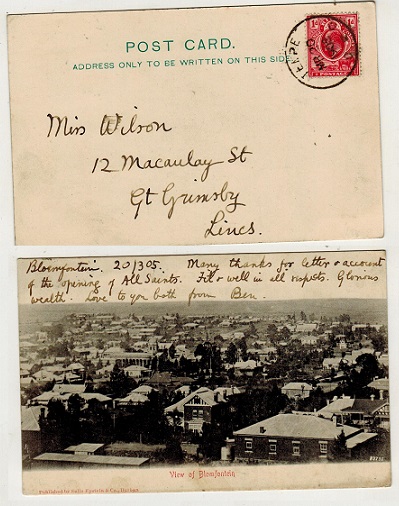 POST CARD.
ADDRESS ONLY TO BE WRITTEN ON THIS SIDE
TEMPE
POSTAGE
Miss Wilson
12 Macaulay St
Gt Grimsby
Lincs.
Bloemfontein. 20/3 05. Many thanks for letter & account
of the opening of All Saints. Fit & well in all respects. Glorious
weath. Love to you both from Ben.
View of Bloemfontein
Published by Sallo Epstein & Co., Durban